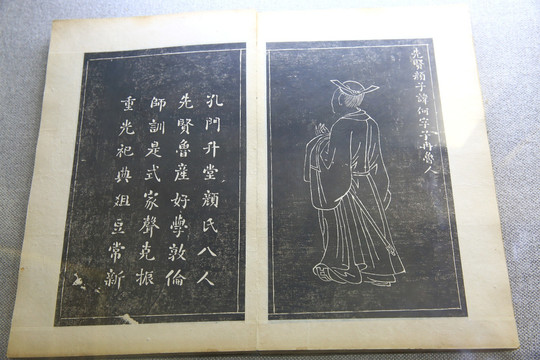 先賢顏子諱何字子冉魯人
孔門升堂顏氏八人
先賢魯產好學敦倫
師訓是式家聲克振
重光祀典俎豆常新